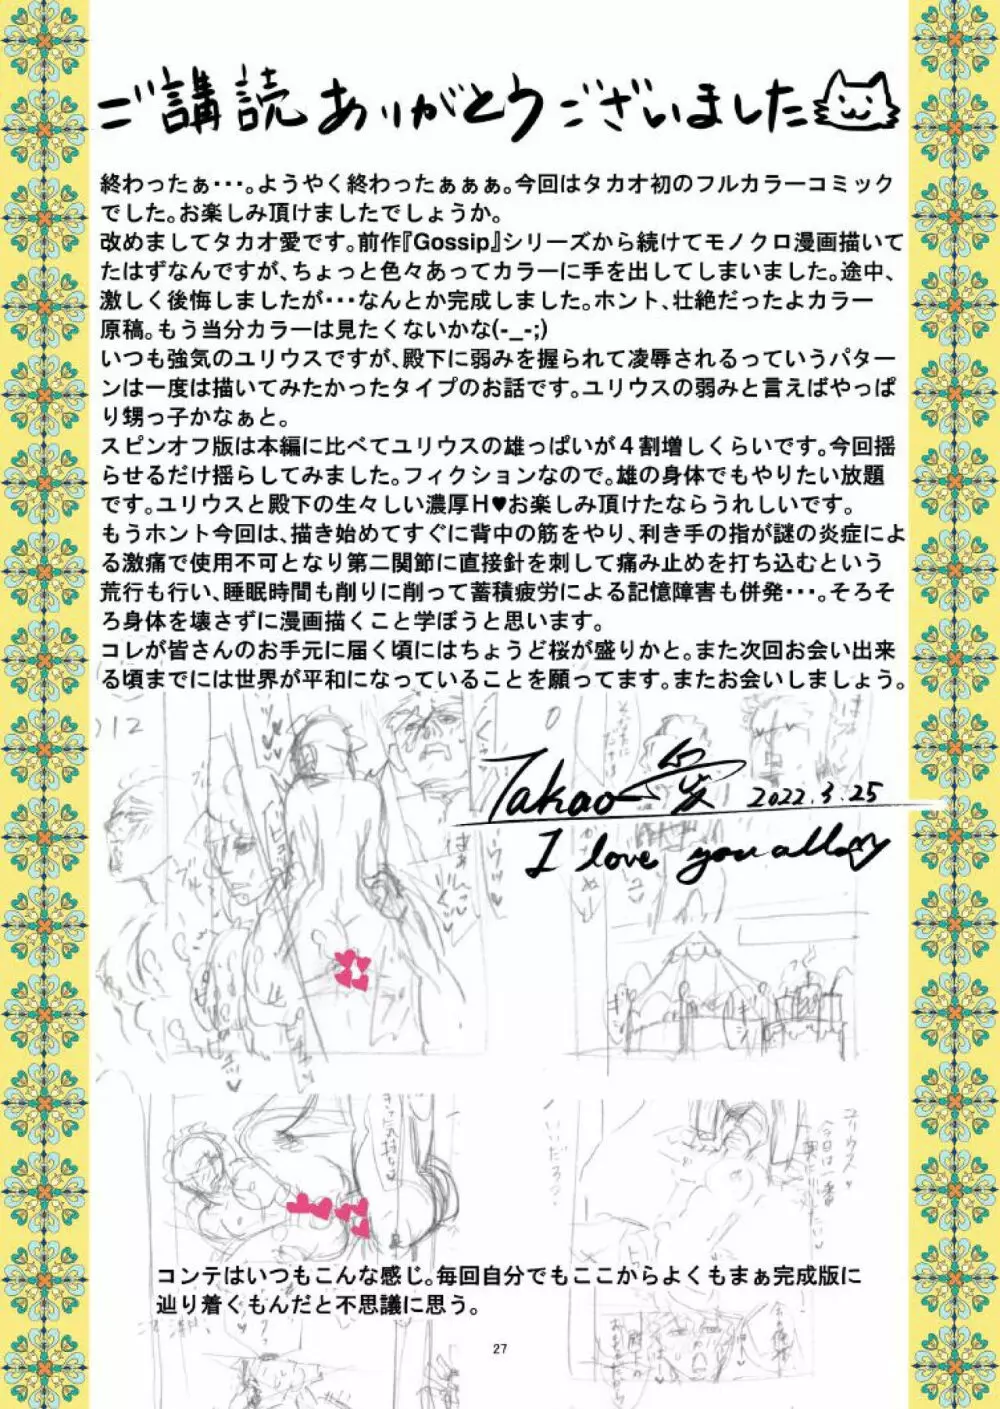 ご講読ありがとうございました
終わったぁ･･･。ようやく終わったぁぁぁ。今回はタカオ初のフルカラーコミック
でした。お楽しみ頂けましたでしょうか。
改めましてタカオ愛です。前作『Gossip』シリーズから続けてモノクロ漫画描いて
たはずなんですが、ちょっと色々あってカラーに手を出してしまいました。途中、
激しく後悔しましたが･･･なんとか完成しました。ホント、壮絶だったよカラー
原稿。もう当分カラーは見たくないかな(-_-;)
いつも強気のユリウスですが、殿下に弱みを握られて凌辱されるっていうパター
ンは一度は描いてみたかったタイプのお話です。ユリウスの弱みと言えばやっぱ
り甥っ子かなぁと。
スピンオフ版は本編に比べてユリウスの雄っぱいが４割増しくらいです。今回揺
らせるだけ揺らしてみました。フィクションなので。雄の身体でもやりたい放題
です。ユリウスと殿下の生々しい濃厚Ｈ♥お楽しみ頂けたならうれしいです。
もうホント今回は、描き始めてすぐに背中の筋をやり、利き手の指が謎の炎症によ
る激痛で使用不可となり第二関節に直接針を刺して痛み止めを打ち込むという
荒行も行い、睡眠時間も削りに削って蓄積疲労による記憶障害も併発･･･。そろそ
ろ身体を壊さずに漫画描くこと学ぼうと思います。
コレが皆さんのお手元に届く頃にはちょうど桜が盛りかと。また次回お会い出来
る頃までには世界が平和になっていることを願ってます。またお会いしましょう。
Takao 愛 2022.3.25
I love you all
ユリウス
コンテはいつもこんな感じ。毎回自分でもここからよくもまぁ完成版に
辿り着くもんだと不思議に思う。
27